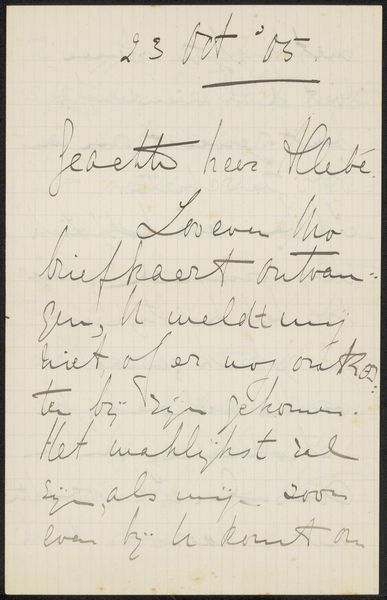 23 Oct '05.
Geachte heer Allebé.
Zoo even Uw
briefkaart ontvan=
gen, U meldt mij
niet, of er nog onkos=
ten bij zijn gekomen.
Het maklijkst zal
zijn, als mijn zoon
even bij U komt om